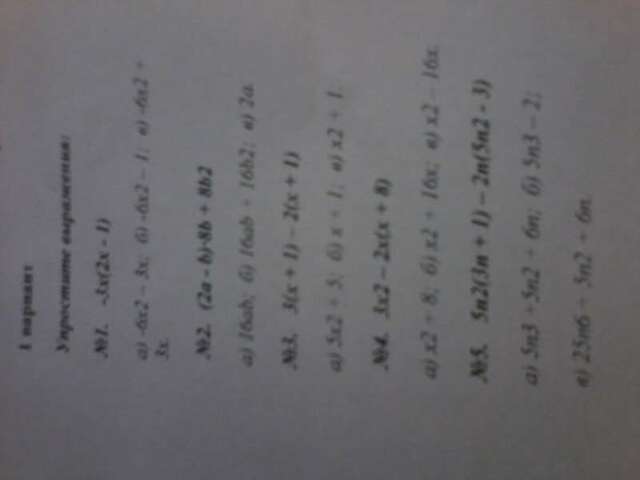 1 вариант
Упростите выражения:
№1. -3x(2x - 1)
а) -6x2 – 3x; б) -6x2 – 1; в) -6x2 +
3x.
№2. (2a - b)·8b + 8b2
а) 16ab; б) 16ab + 16b2; в) 2a.
№3. 3(x + 1) – 2(x + 1)
а) 5x2 + 5; б) x + 1; в) x2 + 1.
№4. 3x2 – 2x(x + 8)
а) x2 + 8; б) x2 + 16x; в) x2 – 16x.
№5. 5n2(3n + 1) – 2n(5n2 - 3)
а) 5n3 +5n2 + 6n; б) 5n3 – 2;
в) 25n6 + 5n2 + 6n.